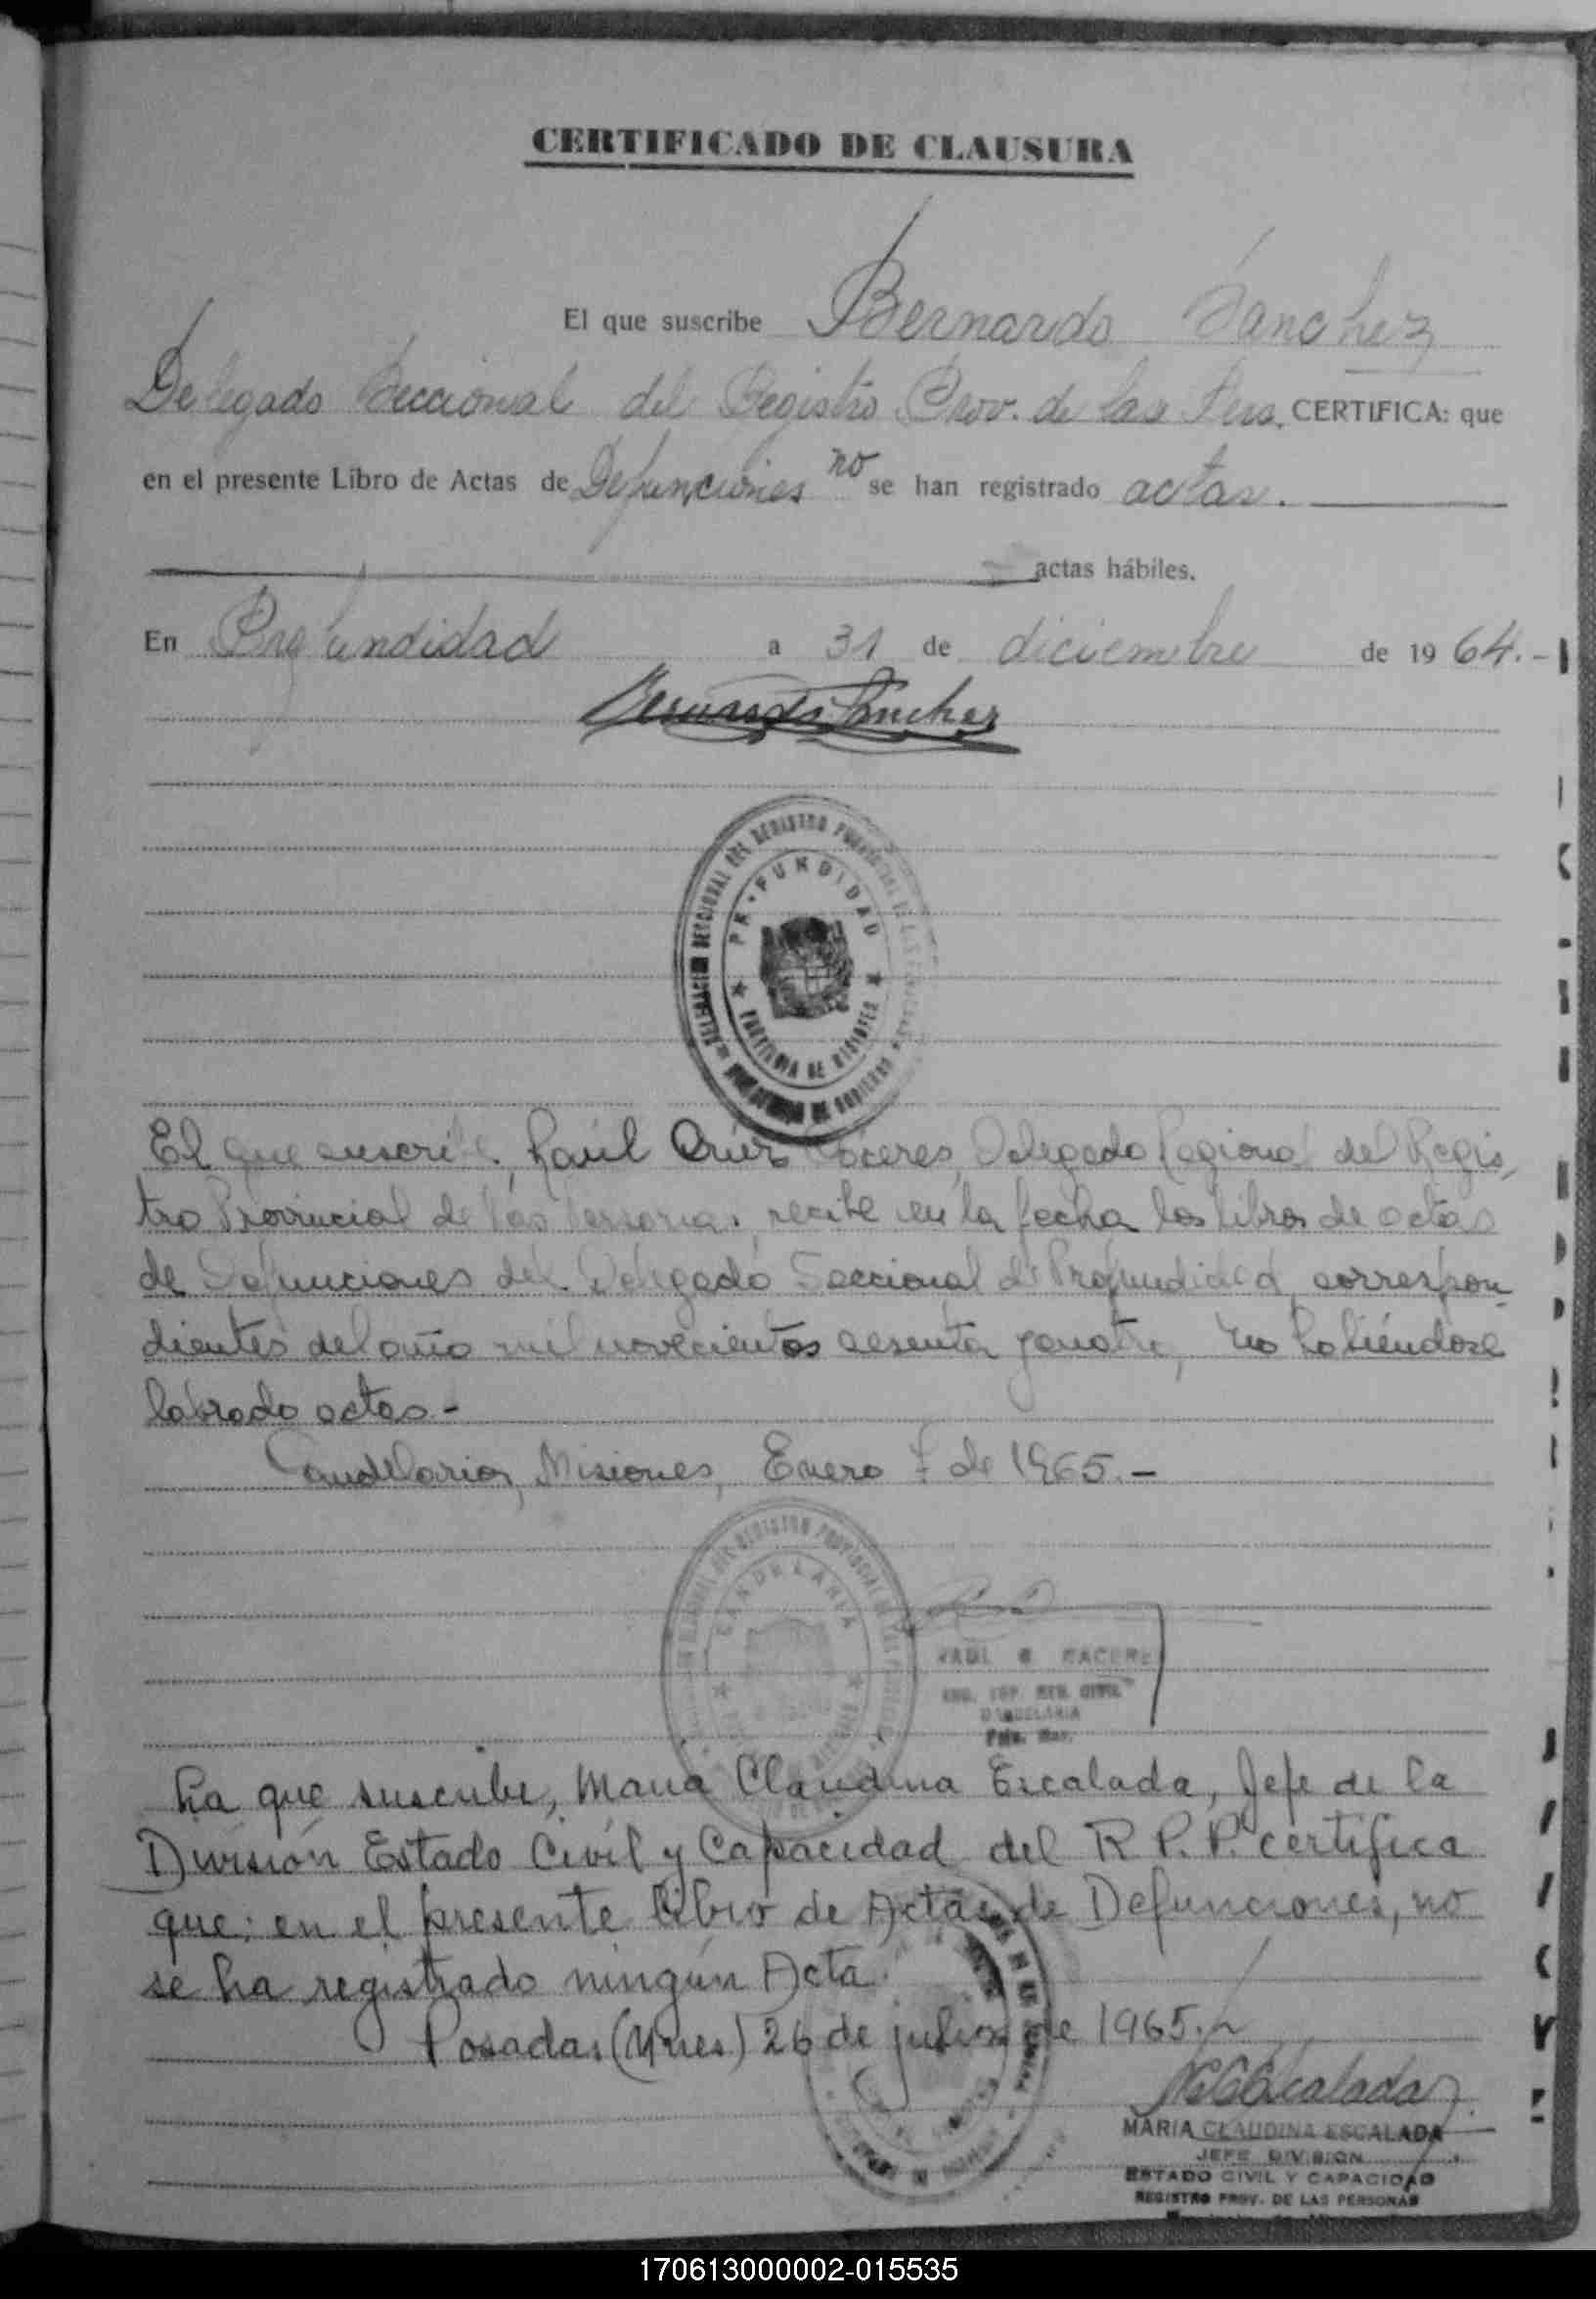 CERTIFICADO DE CLAUSURA
El que suscribe Bernardo Sanchez
Delegado Seccional del Registro Prov. de las Pers. CERTIFICA: que
en el presente Libro de Actas de Defunciones no se han registrado actas.
actas hábiles.
En Profundidad a 31 de diciembre de 1964.-
Bernardo Sanchez
DELEGACION SECCIONAL DEL REGISTRO PROVINCIAL DE LAS
PROFUNDIDAD
PROVINCIA DE MISIONES
DE GOBIERNO
El que suscribe, Raúl Cáceres, Delegado Regional del Regis-
tro Provincial de las Personas, recibe en la fecha los libros de actas
de Defunciones del Delegado Seccional de Profundidad, correspon-
dientes del año mil novecientos sesenta y cuatro, no habiéndose
labrado actas.-
Candelaria, Misiones, Enero 7 de 1965.-
REGISTRO PROVINCIAL DE LAS
CANDELARIA
RAUL CACERES
CIVIL
CANDELARIA
La que suscribe, Maria Claudina Escalada, Jefe de la
División Estado Civil y Capacidad del R.P.P. certifica
que: en el presente libro de Actas de Defunciones, no
se ha registrado ningún Acta.
Posadas (Mnes) 26 de julio de 1965.-
MCEscalada
MARIA CLAUDINA ESCALADA
JEFE DIVISION
ESTADO CIVIL Y CAPACIDAD
REGISTRO PROV. DE LAS PERSONAS
170613000002-015535